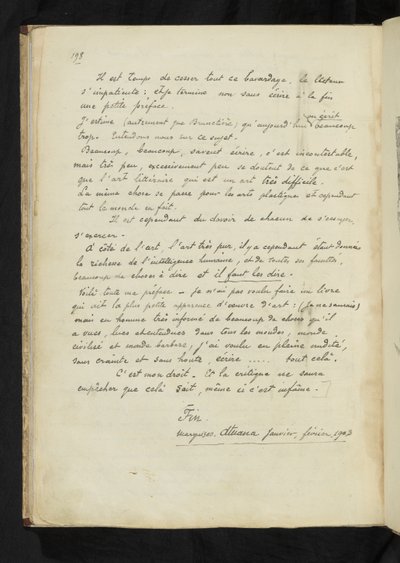 198
Il est temps de cesser tout ce bavardage, le lecteur
s'impatiente : et je termine non sans écrire à la fin
une petite préface.
J'estime (autrement que Brunetière) qu'aujourd'hui on écrit beaucoup
trop. Entendons nous sur ce sujet.
Beaucoup, beaucoup, savent écrire, c'est incontestable,
mais très peu, excessivement peu se doutent de ce que c'est
que l'art littéraire qui est un art très difficile.
La même chose se passe pour les arts plastiques et cependant
tout le monde en fait.
Il est cependant du devoir de chacun de s'essayer,
s'exercer.
A côté de l'art, l'art très pur, il y a cependant étant donnée
la richesse de l'intelligence humaine, et de toutes ses facultés,
beaucoup de choses à dire et il faut les dire.
Voilà toute ma préface — je n'ai pas voulu faire un livre
qui ait la plus petite apparence d'œuvre d'art : (je ne saurais)
mais en homme très informé de beaucoup de choses qu'il
a vues, lues et entendues dans tous les mondes, monde
civilisé et monde barbare, j'ai voulu en pleine nudité,
sans crainte et sans honte, écrire ..... tout celà.
C'est mon droit. Et la critique ne saura
empêcher que celà soit, même si c'est infâme.
Fin.
Marquises. Atuana Janvier, février 1903